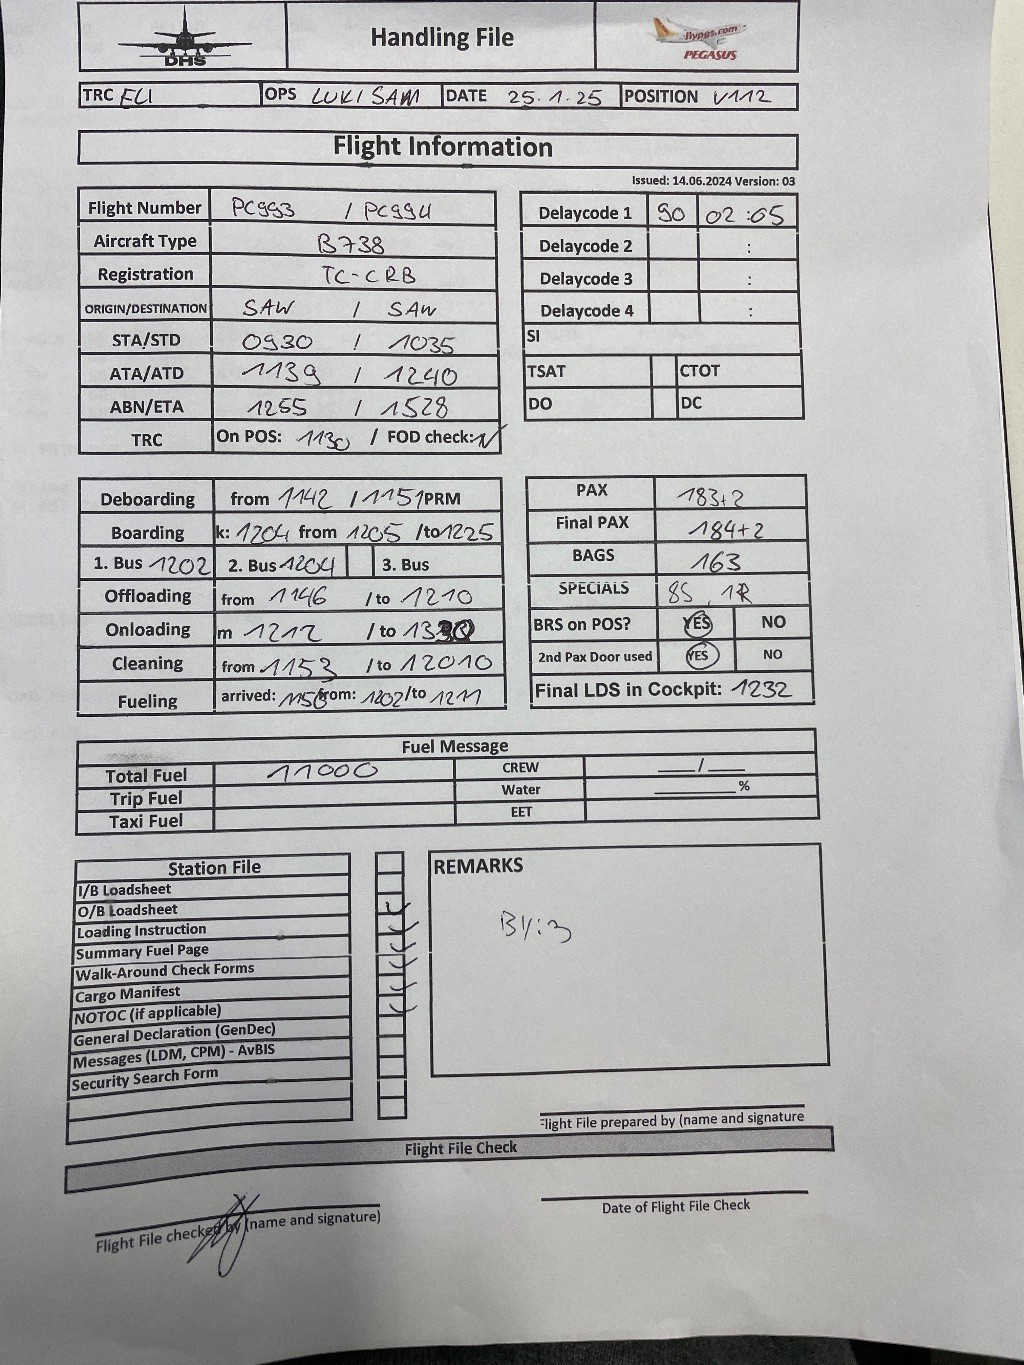 DHS
Handling File
flypgs.com
PEGASUS
TRC ELI OPS LUKI SAM DATE 25.1.25 POSITION V112
Flight Information
Issued: 14.06.2024 Version: 03
Flight Number PC993 / PC994
Aircraft Type B738
Registration TC-CRB
ORIGIN/DESTINATION SAW / SAW
STA/STD 0930 / 1035
ATA/ATD 1139 / 1240
ABN/ETA 1255 / 1528
TRC On POS: 1130 / FOD check:
Delaycode 1 90 02:05
Delaycode 2 :
Delaycode 3 :
Delaycode 4 :
SI
TSAT CTOT
DO DC
Deboarding from 1142 / 1151 PRM
Boarding k: 1204 from 1205 /to 1225
1. Bus 1202 2. Bus 1204 3. Bus
Offloading from 1146 /to 1210
Onloading m 1212 /to
Cleaning from 1153 /to 12010
Fueling arrived: from: 1202 /to 1211
PAX 183+2
Final PAX 184+2
BAGS 163
SPECIALS 8S, 1R
BRS on POS? YES NO
2nd Pax Door used YES NO
Final LDS in Cockpit: 1232
Fuel Message
Total Fuel 11000 CREW ___/___
Trip Fuel Water ________%
Taxi Fuel EET
Station File
I/B Loadsheet
O/B Loadsheet
Loading Instruction
Summary Fuel Page
Walk-Around Check Forms
Cargo Manifest
NOTOC (if applicable)
General Declaration (GenDec)
Messages (LDM, CPM) - AvBIS
Security Search Form
REMARKS
light File prepared by (name and signature
Flight File Check
Flight File checked by (name and signature)
Date of Flight File Check